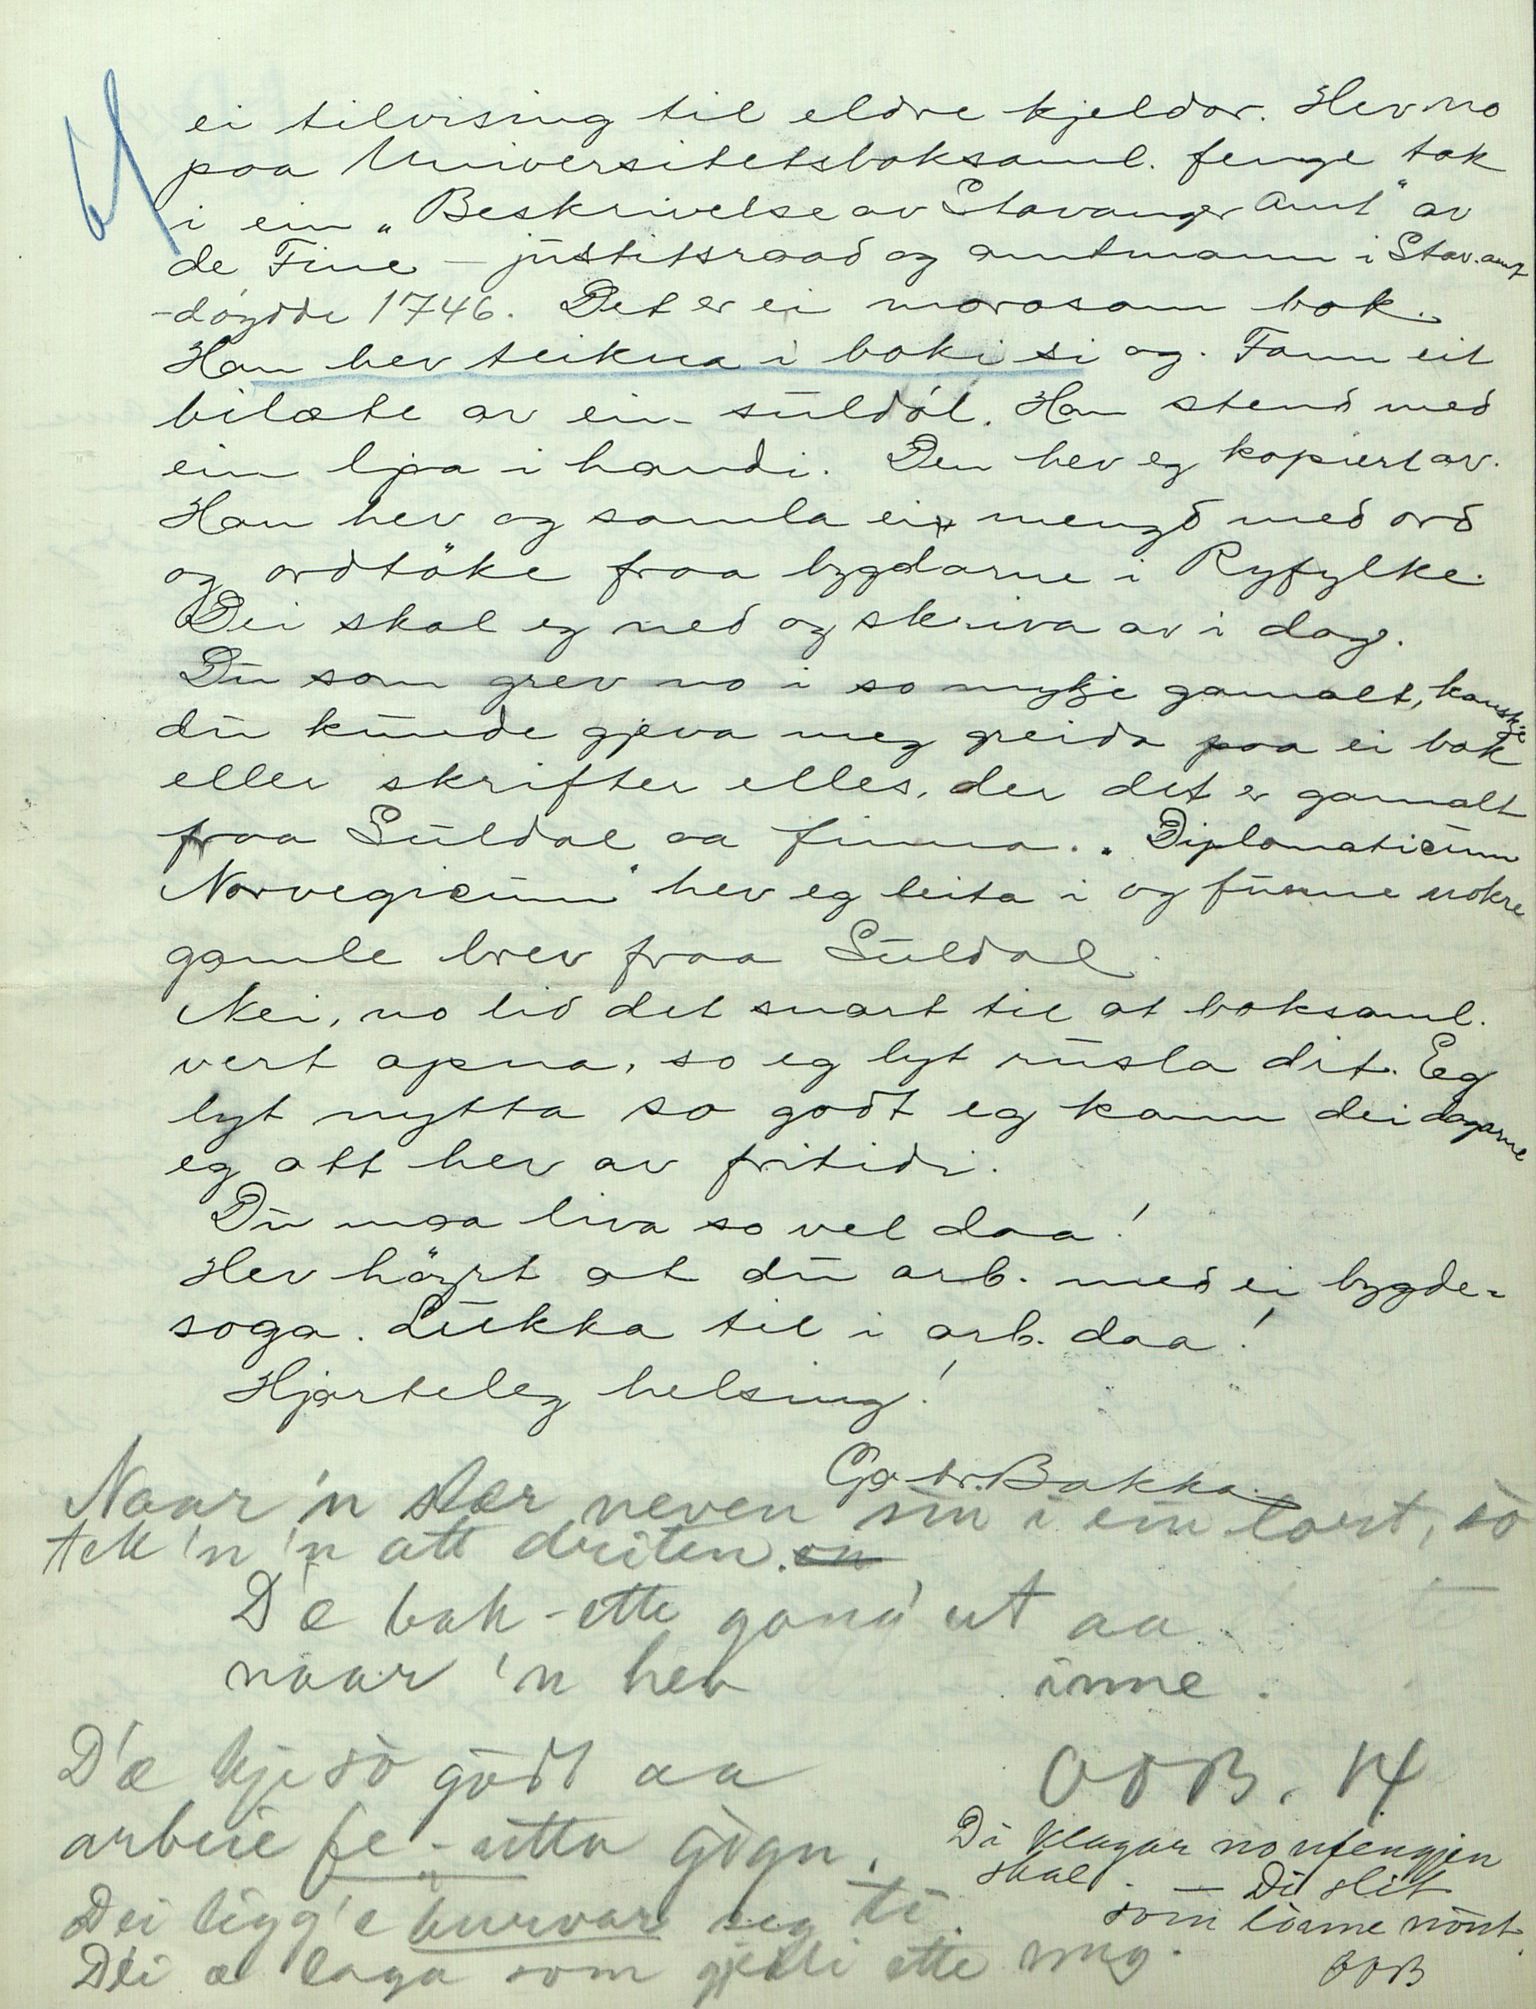 ei tilvising til eldre kjeldor. Hev no
paa Universitetsboksaml. fenge tak
i ein „Beskrivelse av Stavanger Amt" av
de Fine – justitsraad og amtmann i Stav. amt
- döydde 1746. Det er ei morosam bok.
Han hev teikna i boki si og. Fann eit
bilæte av ein suldöl. Han stend med
ein ljaa i handi. Den hev eg kopiert av.
Han hev og samla ei mengd med ord
og ordtöke fraa bygdarne i Ryfylke.
Dei skal eg ned og skriva av i dag.
Du som grev no i so mykje gamalt, kanskje
du kunde gjeva meg greida paa ei bok
eller skrifter elles, der det er gamalt
fraa Suldal aa finna. „Diplomaticum
Norvegicum" hev eg leita i og funne nokre
gamle brev fraa Suldal.
Nei, no lid det snart til at boksaml.
vert opna, so eg lyt rusla dit. Eg
lyt nytta so godt eg kann dei dagarne
eg att hev av fritidi.
Du maa liva so vel daa!
Hev höyrt at du arb. med ei bygde-
soga. Lukka til i arb. daa!
Hjarteleg helsing!
Gadr. Bakka.
Naar 'n slær neven sin i ein lort, so
tek 'n 'n att driten.
D'e bak-ette gana' ut aa
naar 'n hev inne.
D'æ kje so godt aa
arbeie fe-utta gogn.
Dei ligg'e kurvar seg ti.
Dei æ laga som gjedli ette meg.
OOB. 14
Di klagar no ufengjen
skal. – Di slit
som lösne nönt.
OOB